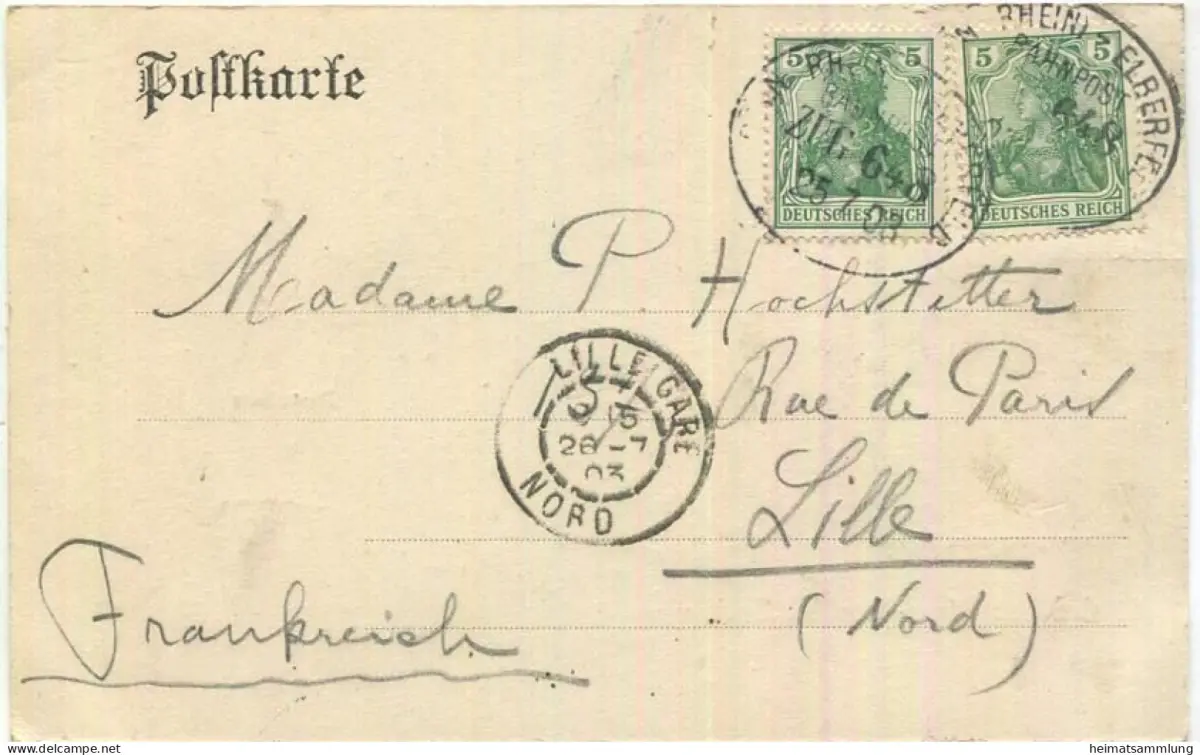 Postkarte
5 5
5 5
DEUTSCHES REICH
DEUTSCHES REICH
ZUG 648
25 7 03
RHEIN)
ELBERFE
BAHNPOST
648
Madame P. Hochstetter
Rue de Paris
Lille
(Nord)
Frankreich
LILLE GARE
26 - 7
03
NORD
heimatsammlung